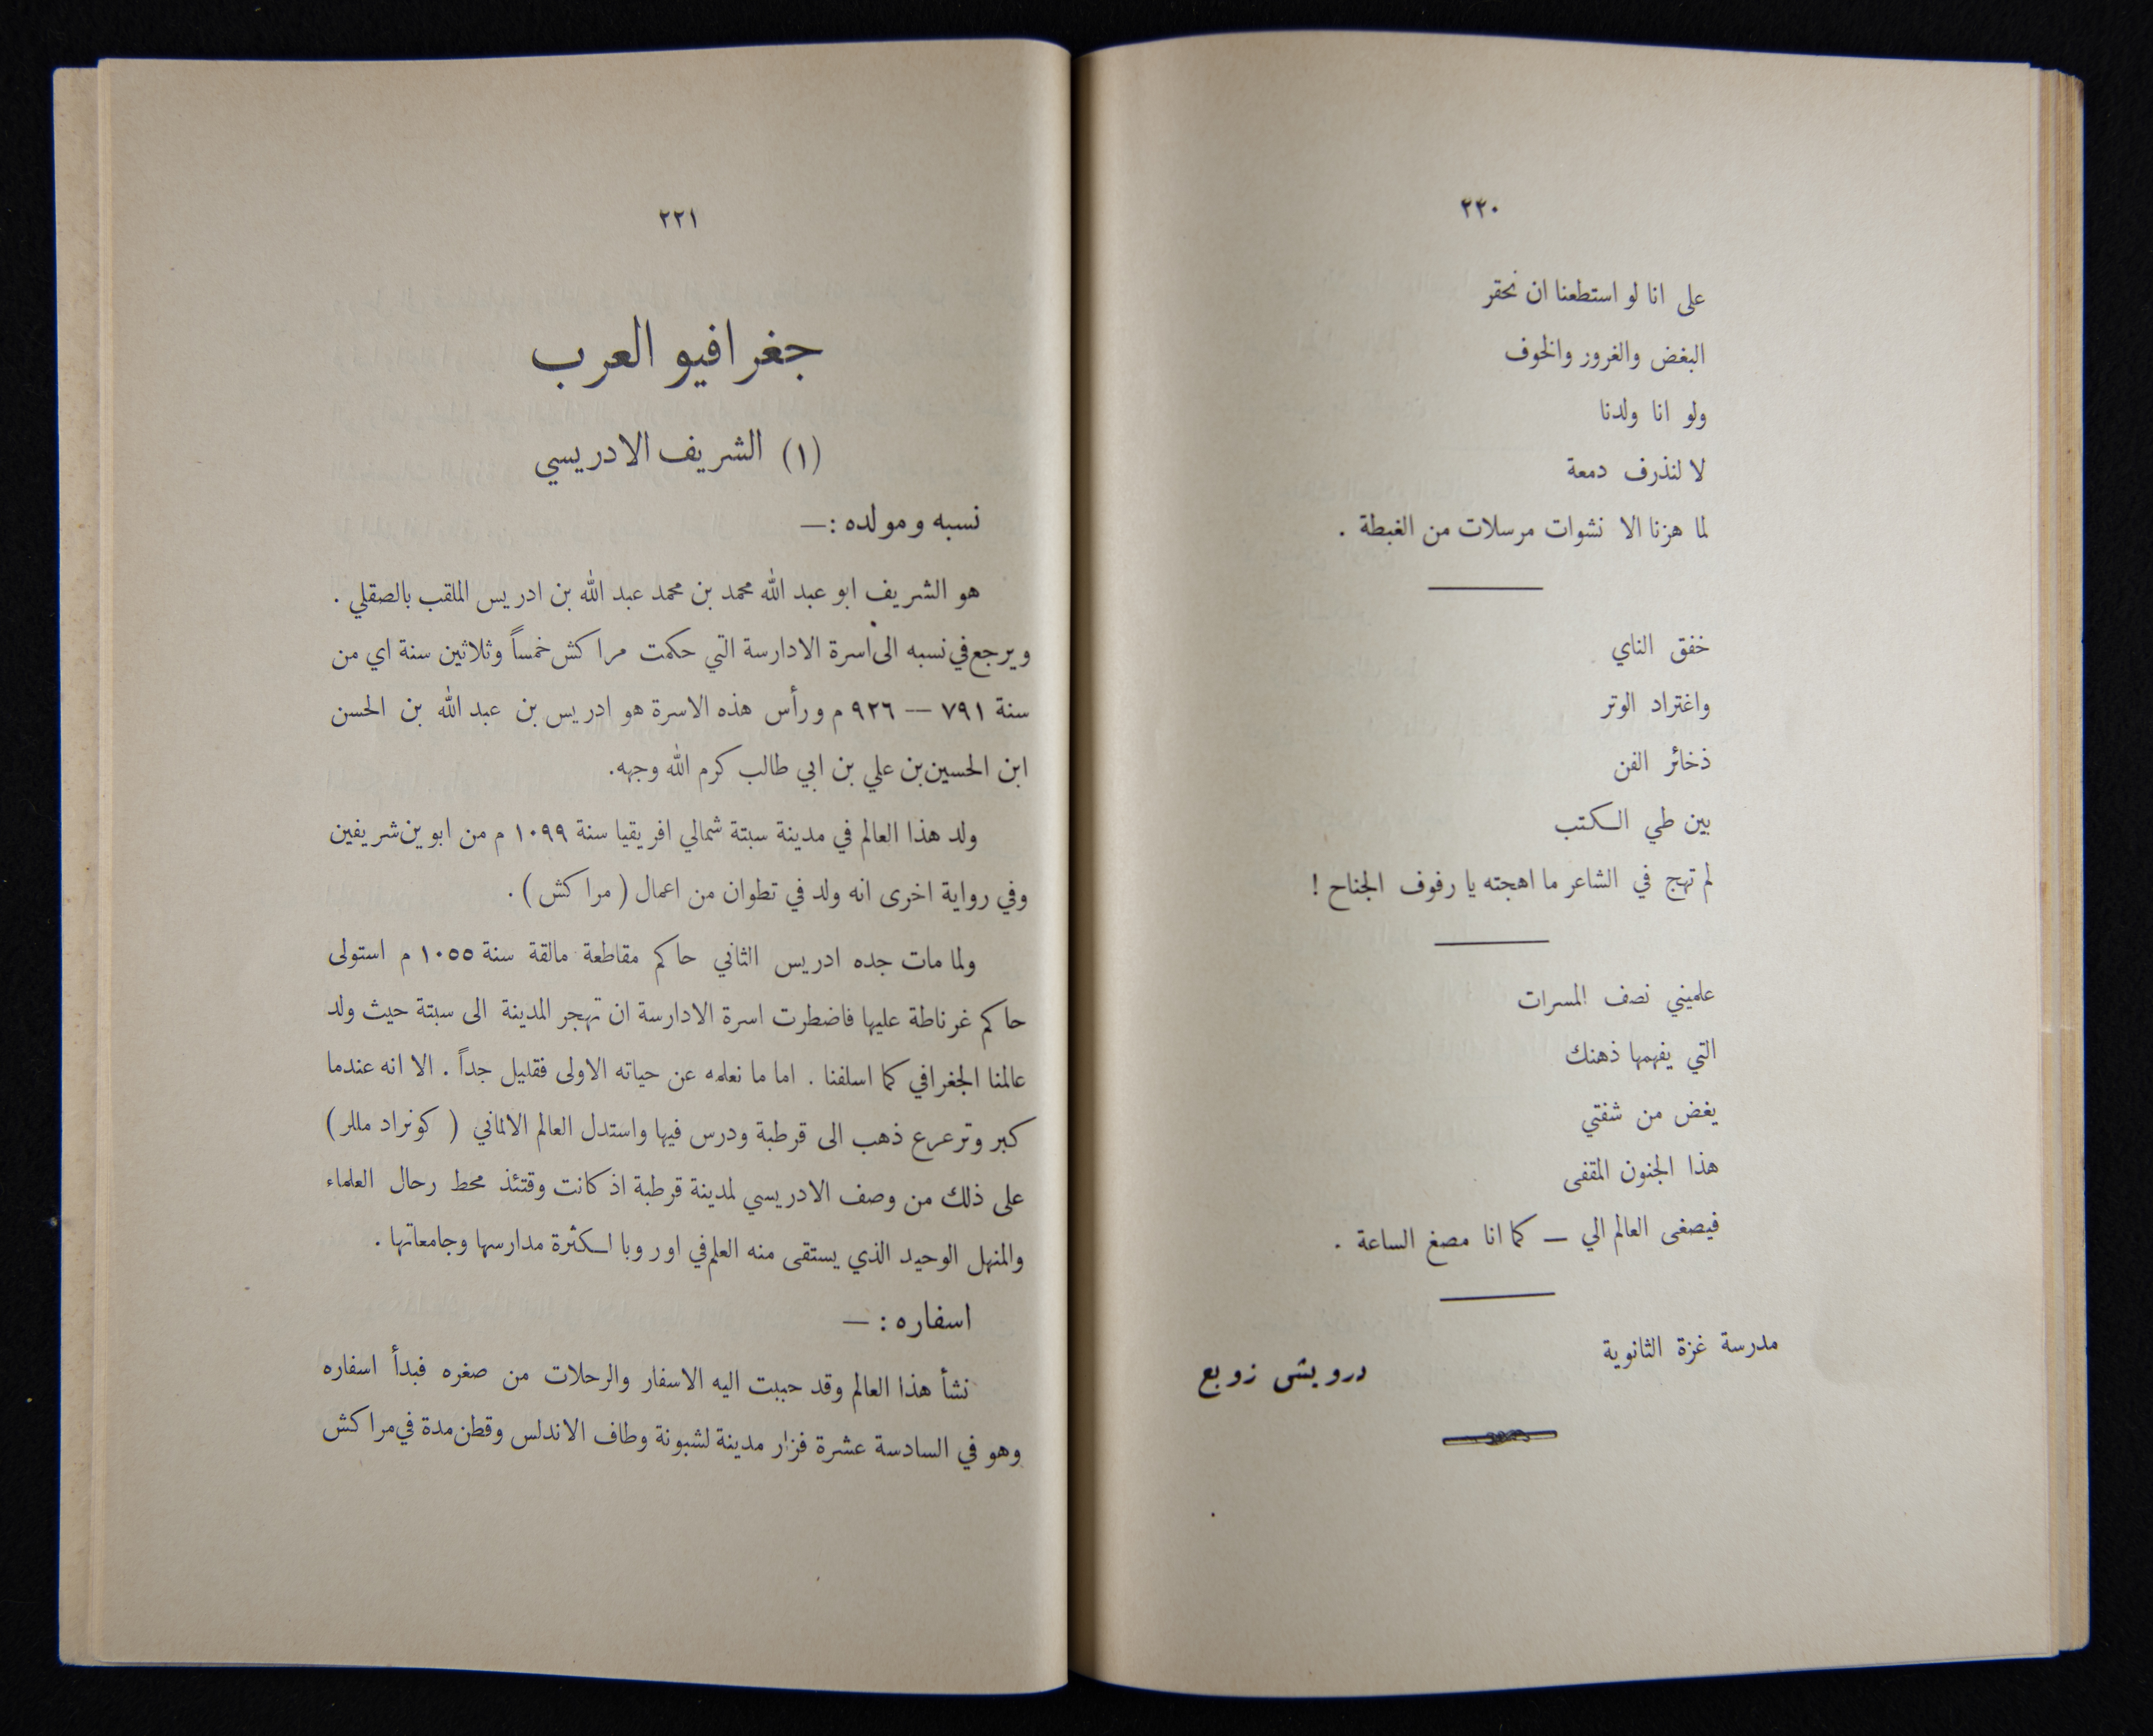 ٢٢٠
على انا لو استطعنا ان نحقر
البغض والغرور والخوف
ولو انا ولدنا
لا لنذرف دمعة
لما هزنا الا نشوات مرسلات من الغبطة .
خفق الناي
واغتراد الوتر
ذخائر الفن
بين طي الكتب
لم تهج في الشاعر ما اهجته يا رفوف الجناح !
علميني نصف المسرات
التي يفهمها ذهنك
يغض من شفتي
هذا الجنون المقفى
فيصغى العالم الي — كما انا مصغ الساعة .
مدرسة غزة الثانوية
درويش زوبع
٢٢١
جغرافيو العرب
(١) الشريف الادريسي
نسبه ومولده :—
هو الشريف ابو عبد الله محمد بن محمد عبد الله بن ادريس الملقب بالصقلي .
ويرجع في نسبه الى اسرة الادارسة التي حكمت مراكش خمساً وثلاثين سنة اي من
سنة ٧٩١ — ٩٢٦ م ورأس هذه الاسرة هو ادريس بن عبد الله بن الحسن
ابن الحسين بن علي بن ابي طالب كرم الله وجهه.
ولد هذا العالم في مدينة سبتة شمالي افريقيا سنة ١٠٩٩ م من ابوين شريفين
وفي رواية اخرى انه ولد في تطوان من اعمال ( مراكش ) .
ولما مات جده ادريس الثاني حاكم مقاطعة مالقة سنة ١٠٥٥ م استولى
حاكم غرناطة عليها فاضطرت اسرة الادارسة ان تهجر المدينة الى سبتة حيث ولد
عالمنا الجغرافي كما اسلفنا . اما ما نعلمه عن حياته الاولى فقليل جداً . الا انه عندما
كبر وترعرع ذهب الى قرطبة ودرس فيها واستدل العالم الالماني ( كونراد مللر )
على ذلك من وصف الادريسي لمدينة قرطبة اذ كانت وقتئذ محط رحال العلماء
والمنهل الوحيد الذي يستقى منه العلم في اوروبا لكثرة مدارسها وجامعاتها .
اسفاره : —
نشأ هذا العالم وقد حببت اليه الاسفار والرحلات من صغره فبدأ اسفاره
وهو في السادسة عشرة فزار مدينة لشبونة وطاف الاندلس وقطن مدة في مراكش